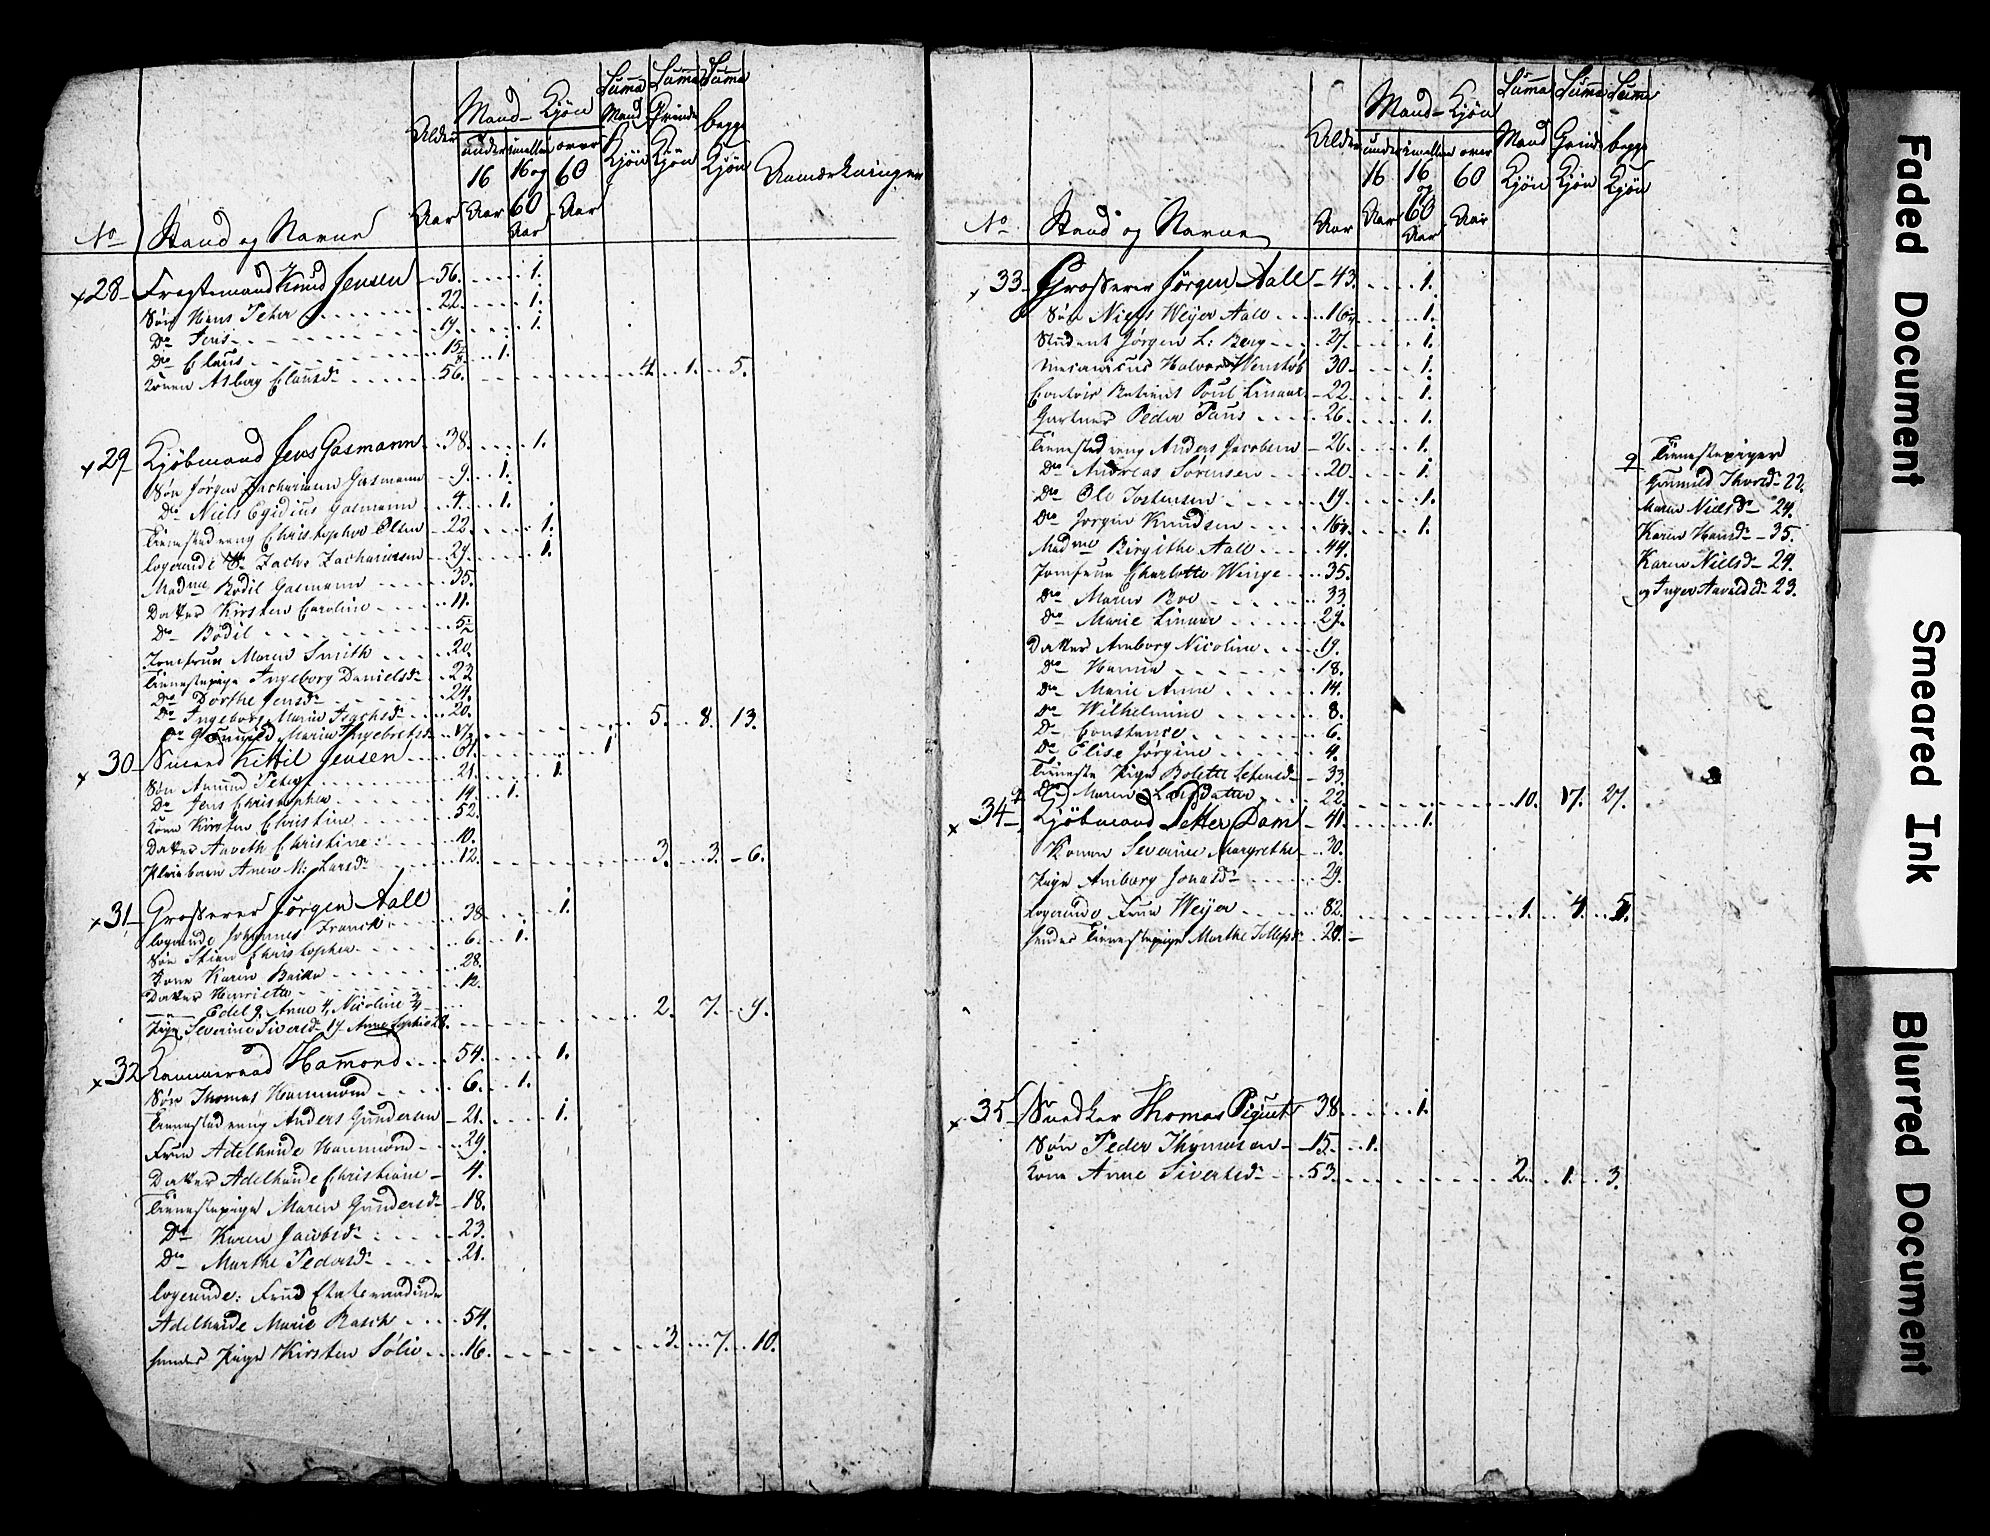 No Stand og Navne Alder Aar Mand-Kjøn under 16 Aar imellem 16 og 60 Aar over 60 Aar Suma Mand Kjøn Suma Qvinde Kjøn Suma begge Kjøn Anmærkninger
x 28 Fragtemand Knud Jensen 56. 1.
Søn Hans Peter 22. 1.
Do Jens 19. 1.
Do Claus 15 1.
Konen Asborg Clausd. 56. 4. 1. 5.
x 29 Kjøbmand Jens Gasmann 38. 1.
Søn Jørgen Zachariann Gasmann 9. 1.
Do Niels Egidius Gasmann 4. 1.
Tienestedreng Christopher Olsen 22. 1.
logerende Zachr Zachariasen 29. 1.
Madme Bodil Gasmann 35.
Datter Kirsten Caroline 11.
Do Bodil 5½
Jomfrue Maren Smith 20.
Tienestepige Ingeborg Danielsd. 23
Do Dorthe Jensd. 24.
Do Ingeborg Maria Isachsd. 20.
Do Gunnild Maria Ingebretsd. 17. 5. 8. 13.
x 30 Smed Kittil Jensen 61. 1
Søn Amund Peter 21. 1.
Do Jens Christopher 14. 1.
Kone Kirsten Christine 52.
Datter Anneth Christine 10.
Pleiebarn Anne M: Larsd. 12. 3. 3. 6.
x 31 Grosserer Jørgen Aall
logerende Johannes Franck 38 1.
Søn Stien Christopher 6. 1.
Kone Karen 28.
Datter Henriette 12.
Edel 9. Anne 4, Nicoline ¾
Pige Severine Siversd. 19 Anne Sophie 28. 2. 7. 9.
x 32 Kammeraad Hamond 54. 1.
Søn Thomas Hammond 6. 1.
Tienestedreng Anders Gunderson 21. 1.
Frue Adelheide Hammond 29.
Datter Adelheide Christiane 4.
Tienestepige Maren Gundersd. 18.
Do Karen Jacobsd. 23.
Do Marthe Pedersd. 21.
logerende: Frue Etatsraadinde
Adelheide Marie Rasch 54.
hendes Pige Kirsten Solie 16. 3. 7. 10.
No Stand og Navne Alder Aar Mand-Kjøn under 16 Aar imellem 16 og 60 Aar over 60 Aar Suma Mand Kjøn Suma Qvinde Kjøn Suma begge Kjøn
x 33 Grosserer Jørgen Aall 43. 1.
Søn Niels Weyer Aall 16 1.
Student Jørgen L: Berg 27. 1.
Mecanicus Halvor Wenstøb 30. 1.
Contoir Betient Poul Linaae 22. 1.
Gartner Peder Paus 26. 1.
Tienestedreng Anders Jacobsen 26. 1.
Do Andreas Sørensen 20. 1.
Do Ole Tostensen 19. 1.
Do Jørgen Knudsen 16 1.
Madme Birgithe Aall 44.
Jomfrue Charlotte Winge 35.
Do Maren Boe 33.
Do Marie Linaae 29.
Datter Amborg Nicoline 19.
Do Hanna 18.
Do Marie Anne 14.
Do Wilhelmine 8.
Do Constance 6.
Do Elise Jørgine 4.
Tieneste Pige Bolette 33.
Do Maren Larsdatter 22. 10. 17. 27.
Tienestepiger
Gunnild Thord. 22.
Maren Nielsd. 24.
Karen Hansd. 35.
Karen Nielsd. 24.
og Inger Aavoldsd. 23.
x 34 Kjøbmand Petter Dam 41. 1.
Konen Severine Margrethe 30.
Pige Amborg Jonasd. 29.
logerende Frue Weyer 82. 1. 4. 5.
hendes Tienestepige Marthe 28.
x 35 Snedker Thomas Piquet 38. 1.
Søn Peder Thomasen 15. 1.
Kone Anne Sivertsd. 53. 2. 1. 3.
Faded Document
Smeared Ink
Blurred Document